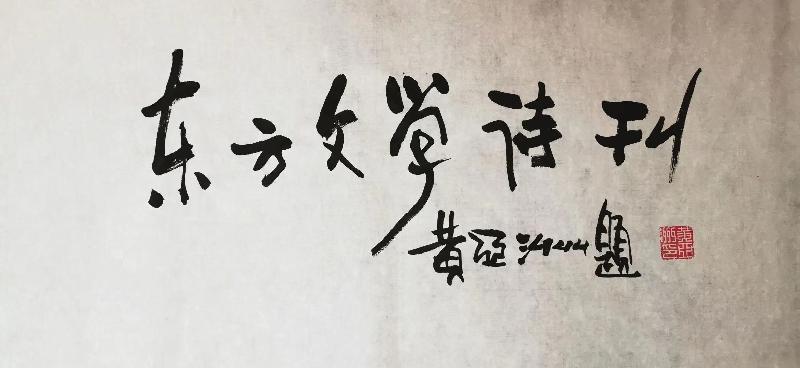 东方文学诗刊
黄亚洲题